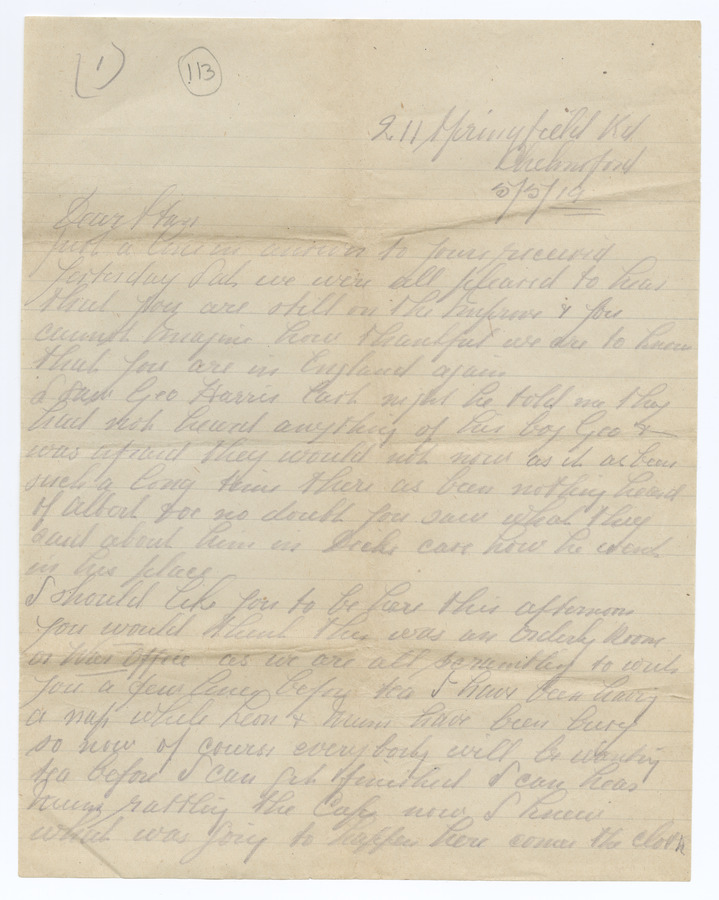 1
113
211 Springfield Rd
Chelmsford
5/5/19
Dear Stan
Just a line in answer to yours received
yesterday Sat, we were all pleased to hear
that you are still on the improve & you
cannot imagine how thankful we are to know
that you are in England again
I saw Geo Harris last night he told me they
had not heard anything of his boy Geo &
was afraid they would not now as it as been
such a long time there as been nothing heard
of Albert no doubt you saw what they
said about him in case how he went
in his place
I should like you to be here this afternoon
you would think this was an Orderly Room
or War Office as we are all scrambling to write
you a few lines before tea I have been having
a nap while & mum have been busy
so now of course everybody will be wanting
tea before I can get finished I can hear
mum rattling the Cups now I knew
what was going to happen here comes the cloth